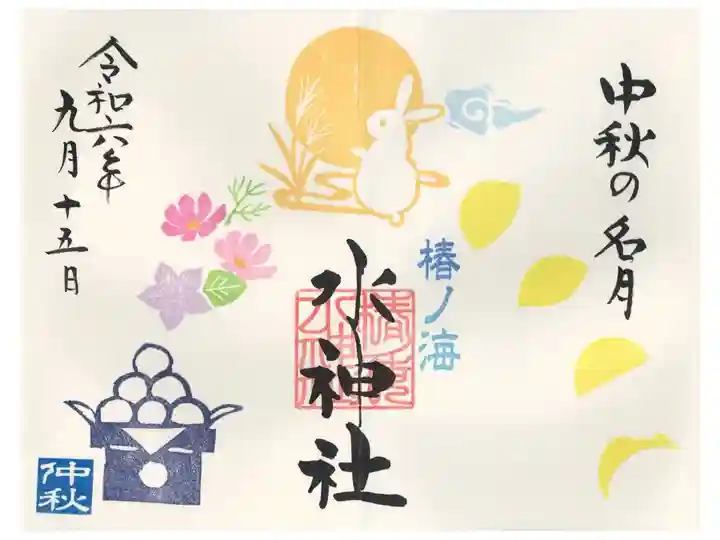 中秋の名月
椿ノ海
水神社
令和六年
九月十五日
仲秋